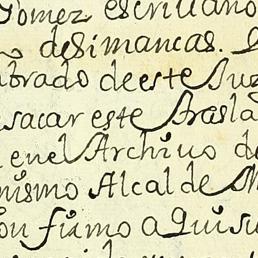 Gomez escriuano
de Simancas.
brado de este Juz
sacar este Trasla
en el Archiuo de
mismo Alcalde M
on fumo a Qui su